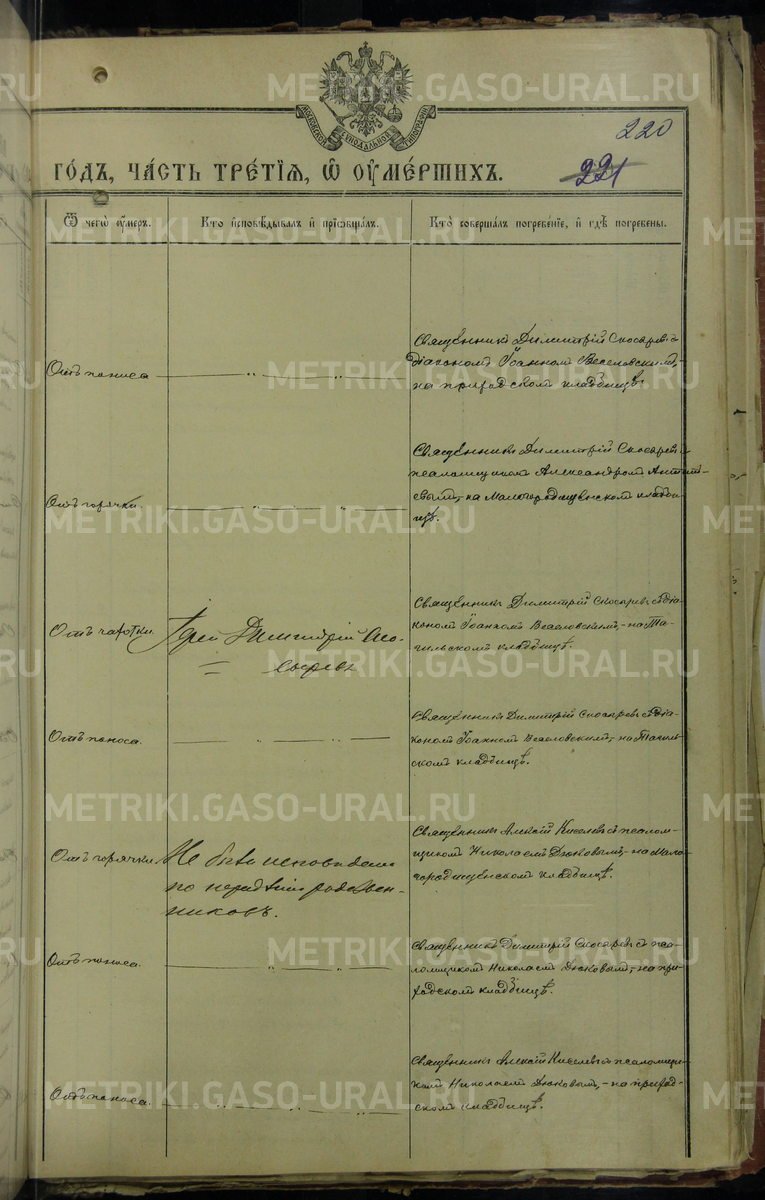 МОСКОВСКОЙ СѴНОДАЛЬНОЙ ТИПОГРАФІИ
220
221
ГО́ДЪ, ЧА́СТЬ ТРЕ́ТІѦ, Ѡ҆ ОУ҆МЕ́РШИХЪ.
Ѿ чегѡ̀ оу҆́меръ.
Кто̀ и҆сповѣ́дывалъ и҆ прїѡбща́лъ.
Кто̀ соверша́лъ погребе́нїе, и҆ гдѣ̀ погребены̀.
Отъ поноса
Священникъ Димитрій Скосыревъ съ
діакономъ Іоанномъ Веселовскимъ,
на приходскомъ кладбищѣ.
Отъ горячки.
Священникъ Димитрій Скосыревъ съ
псаломщикомъ Александромъ
на Малогородищенскомъ кладби-
щѣ.
Отъ чахотки.
Іерей Димитрій Ско-
сыревъ
Священникъ Димитрій Скосыревъ съ діа-
кономъ Іоанномъ Веселовскимъ, - на Та-
гильскомъ кладбищѣ.
Отъ поноса.
Священникъ Димитрій Скосыревъ съ діа-
кономъ Іоанномъ Веселовскимъ, на Тагиль-
скомъ кладбищѣ.
Отъ горячки.
Не былъ исповѣданъ
по нерадѣнію родствен-
никовъ.
Священникъ Алексій Киселевъ съ псалом-
щикомъ Николаемъ Дюковымъ, - на Мало-
городищенскомъ кладбищѣ.
Отъ поноса.
Священникъ Димитрій Скосыревъ съ пса-
ломщикомъ Николаемъ Дюковымъ, - на при-
ходскомъ кладбищѣ.
Отъ поноса.
Священникъ Алексій Киселевъ съ псаломщи-
комъ Николаемъ Дюковымъ, - на приход-
скомъ кладбищѣ.
METRIKI.GASO-URAL.RU